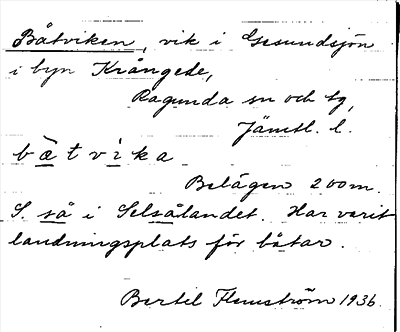 Båtviken, vik i Gesundsjön
i byn Krångede,
Ragunda sn och tg,
Jämtl. l.
bàtvìka
Belägen 200 m.
S. så i Selsålandet. Har varit
landningsplats för båtar.
Bertil Flemström 1936.